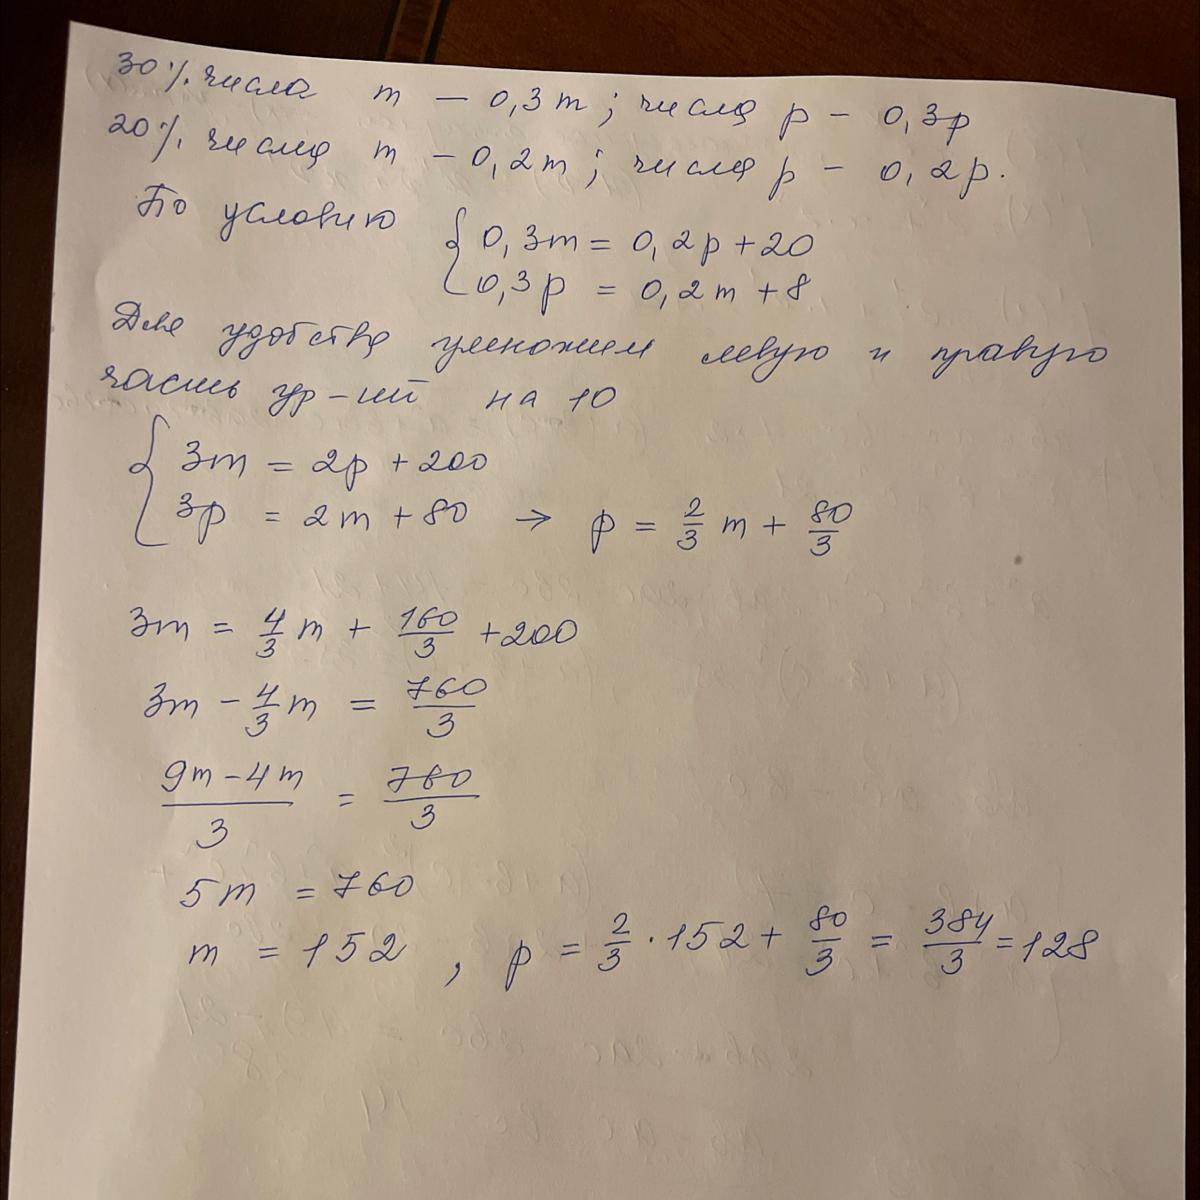 30% числа m – 0,3m; числа p – 0,3p
20% числа m – 0,2m; числа p – 0,2p.
По условию { 0,3m = 0,2p + 20
0,3p = 0,2m + 8
Для удобства умножим левую и правую
часть ур-ий на 10
{ 3m = 2p + 200
3p = 2m + 80 → p = 2/3 m + 80/3
3m = 4/3 m + 160/3 + 200
3m – 4/3 m = 760/3
(9m – 4m)/3 = 760/3
5m = 760
m = 152, p = 2/3 · 152 + 80/3 = 384/3 = 128